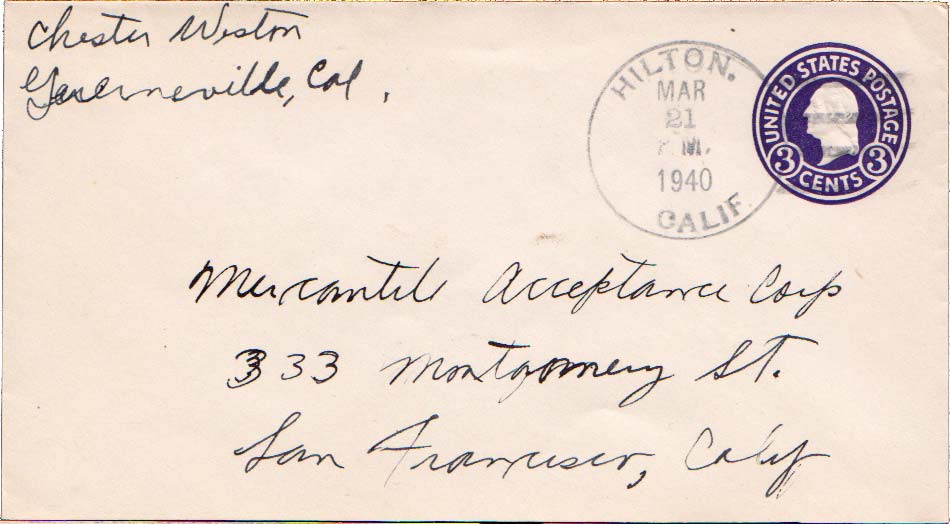 Chester Weston
Guerneville, Cal.
HILTON.
MAR
21
P.M.
1940
CALIF.
UNITED STATES POSTAGE
3 CENTS 3
Mercantile Acceptance Corp
333 Montgomery St.
San Francisco, Calif